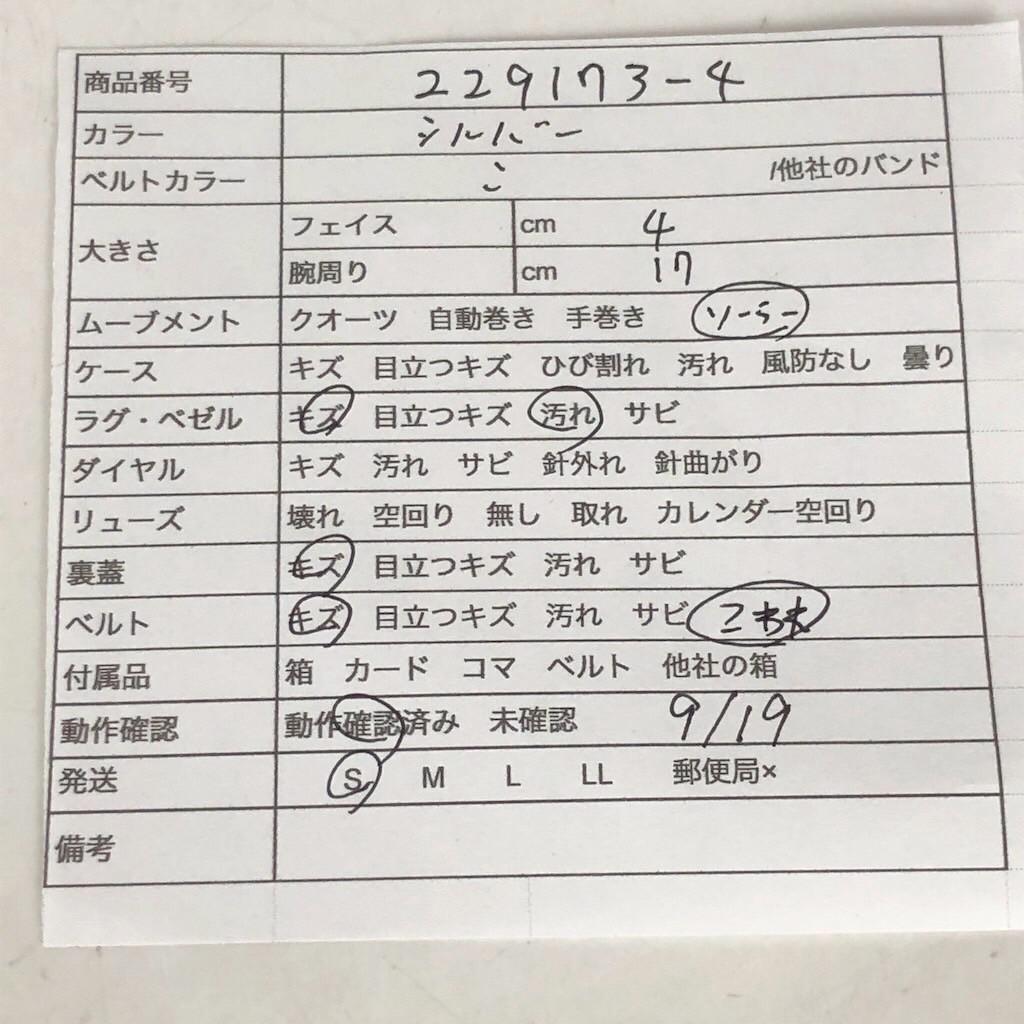 商品番号 229173-4
カラー シルバー
ベルトカラー /他社のバンド
大きさ フェイス cm 4
腕周り cm 17
ムーブメント クオーツ 自動巻き 手巻き ソーラー
ケース キズ 目立つキズ ひび割れ 汚れ 風防なし 曇り
ラグ・ベゼル キズ 目立つキズ 汚れ サビ
ダイヤル キズ 汚れ サビ 針外れ 針曲がり
リューズ 壊れ 空回り 無し 取れ カレンダー空回り
裏蓋 キズ 目立つキズ 汚れ サビ
ベルト キズ 目立つキズ 汚れ サビ
付属品 箱 カード コマ ベルト 他社の箱
動作確認 動作確認済み 未確認 9/19
発送 S M L LL 郵便局×
備考